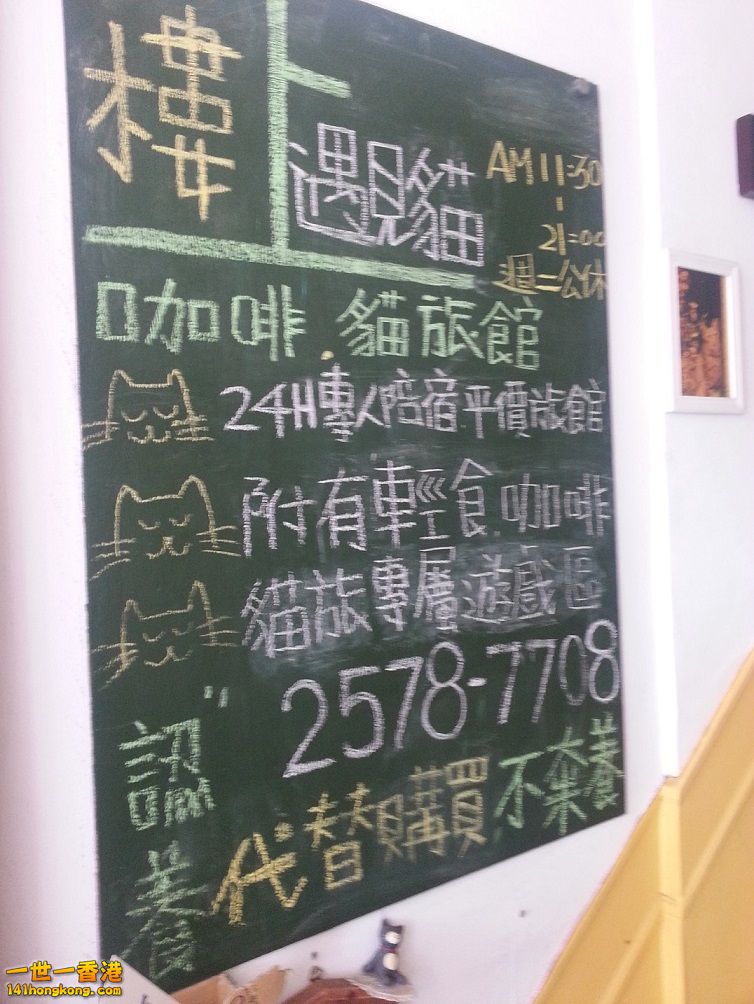 樓上
遇見貓
AM 11:30
-
21:00
週二公休
咖啡.貓旅館
24H專人陪宿.平價旅館
附有輕食.咖啡
貓旅專屬遊戲區
2578-7708
"認養
代替購買.不棄養
一世一香港
141hongkong.com